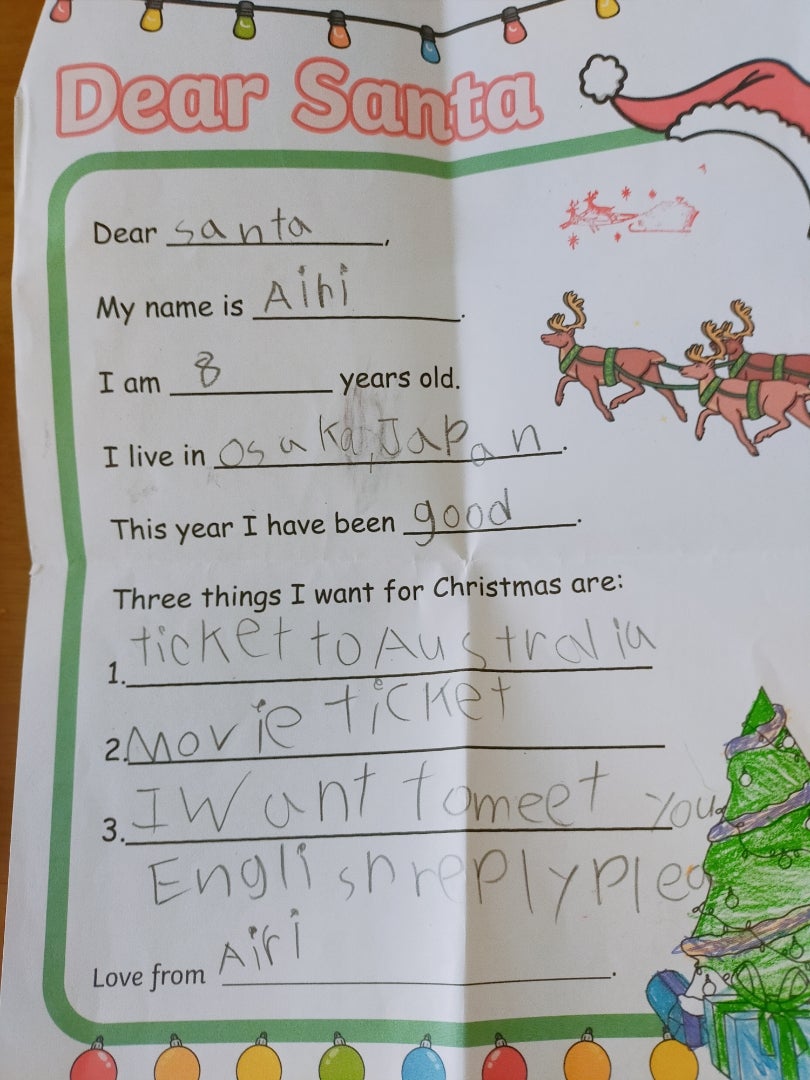 Dear Santa
Dear santa,
My name is Airi.
I am 8 years old.
I live in Osaka, Japan.
This year I have been good.
Three things I want for Christmas are:
1. ticket to Australia
2. Movie ticket
3. I Want to meet You
English reply Plea
Love from Airi.